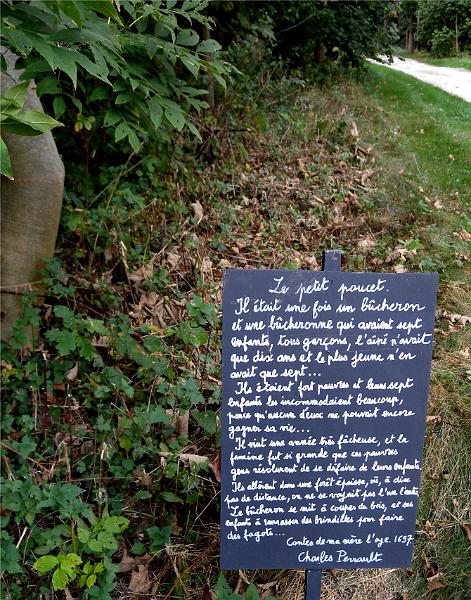 Le petit poucet.
Il était une fois un bûcheron
et une bûcheronne qui avaient sept
enfants, tous garçons, l'aîné n'avait
que dix ans et le plus jeune n'en
avait que sept...
Ils étaient fort pauvres et leurs sept
enfants les incommodaient beaucoup,
parce qu'aucun d'eux ne pouvait encore
gagner sa vie...
Il vint une année très fâcheuse, et la
famine fut si grande que ces pauvres
gens résolurent de se défaire de leurs enfants.
Ils allèrent dans une forêt épaisse, où, à dix
pas de distance, on ne se voyait pas l'un l'autre
Le bûcheron se mit à couper du bois, et ses
enfants à ramasser des brindilles pour faire
des fagots...
Contes de ma mère l'oye. 1697
Charles Perrault